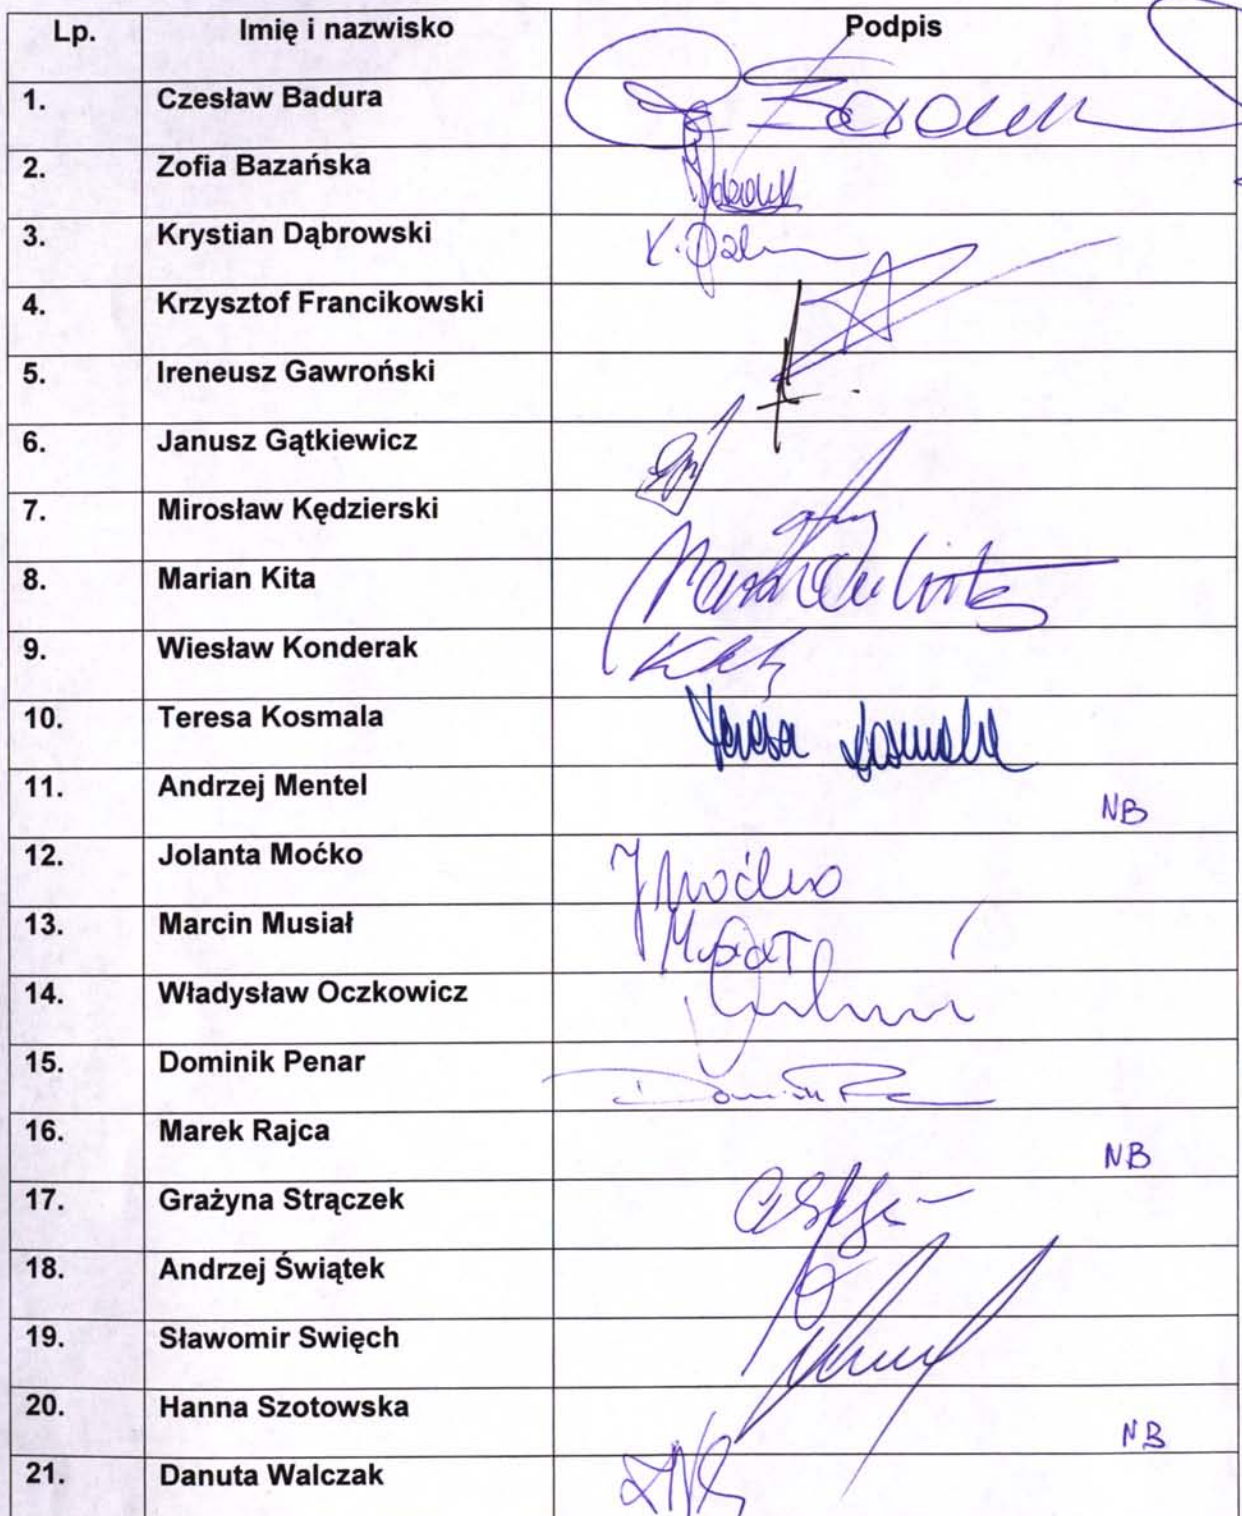 Lp. Imię i nazwisko Podpis
1. Czesław Badura
2. Zofia Bazańska
3. Krystian Dąbrowski K.
4. Krzysztof Francikowski
5. Ireneusz Gawroński
6. Janusz Gątkiewicz
7. Mirosław Kędzierski
8. Marian Kita
9. Wiesław Konderak
10. Teresa Kosmala Teresa Kosmala
11. Andrzej Mentel NB
12. Jolanta Moćko J Moćko
13. Marcin Musiał
14. Władysław Oczkowicz
15. Dominik Penar Dominik
16. Marek Rajca NB
17. Grażyna Strączek
18. Andrzej Świątek
19. Sławomir Swięch
20. Hanna Szotowska NB
21. Danuta Walczak